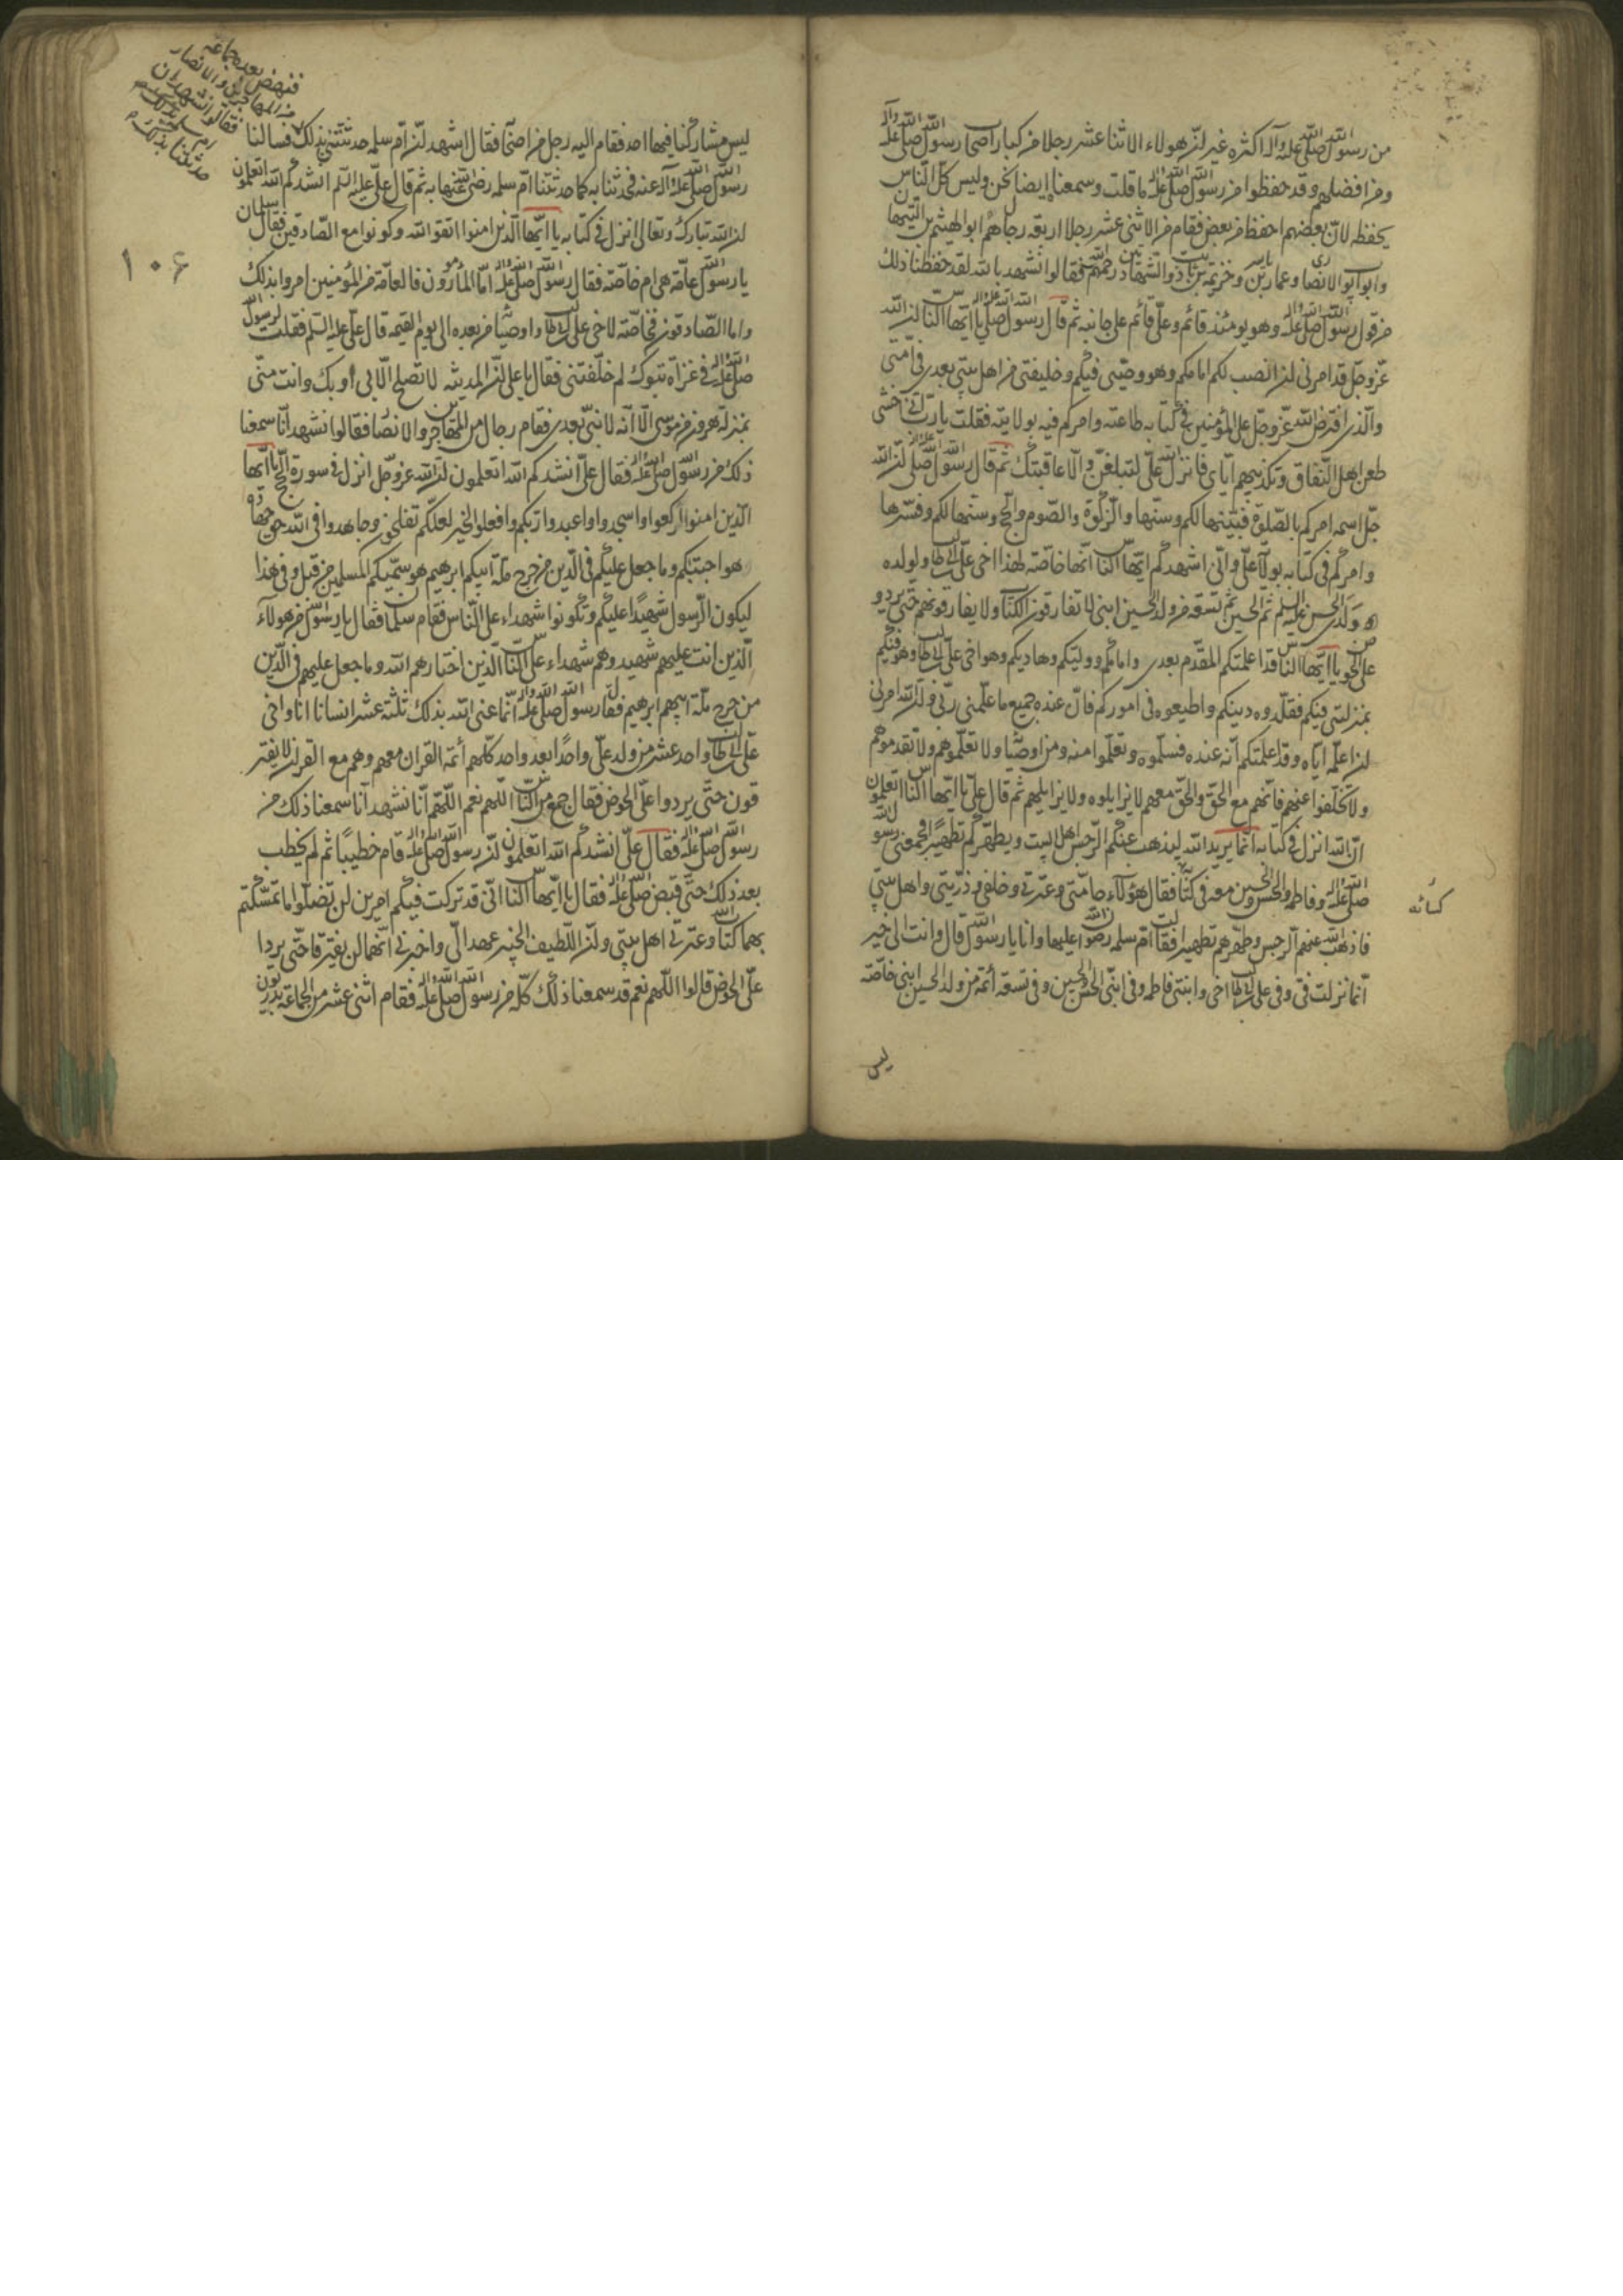 من رسول الله صلى الله عليه وآله اكثره غير ان هولاء الاثنا عشر رجلا من كبار اصحاب رسول الله صلى الله عليه وآله
ومن افضلهم وقد حفظوا من رسول الله صلى الله عليه ما قلت وسمعناه ايضا نحن وليس كل الناس
يحفظه لان بعضهم احفظ من بعض فقام من الاثنى عشر رجلا اربعة رجال هم ابو الهيثم بن التيهان
وابو ايوب الانصاري وعمار بن ياسر وخزيمة بن ثابت ذو الشهادتين رحمهم الله فقالوا نشهد بالله لقد حفظنا ذلك
من قول رسول الله صلى الله عليه وآله وهو يومئذ قائم وعلي قائم على جانبه ثم قال رسول الله صلى الله عليه وآله يا ايها الناس ان الله
عز وجل قد امرني ان انصب لكم امامكم وهو وصيي فيكم وخليفتي من اهل بيتي بعدي في امتي
والذي افترض الله عز وجل على المؤمنين في كتابه طاعته وامركم فيه بولايته فقلت يا رب اني خشى
طعن اهل النفاق وتكذيبهم اياي فانزل الله علي لتبلغن والا عاقبتك ثم قال رسول الله صلى الله عليه وآله ان الله
جل اسمه امركم بالصلوة فبينتها لكم وسنتها والزكوة والصوم والحج وسنتها لكم وفسرها
وامركم في كتابه بولاية علي واني اشهدكم ايها الناس انها خاصة لهذا اخي علي بن ابي طالب ولولده
ولدي الحسن عليه السلم ثم الحسين ثم تسعة من ولد الحسين ابني لا تفارقون الكتاب ولا يفارقونهم حتى يردو
على الحوض يا ايها الناس قد اعلمتكم المقدم بعدي وامامكم ووليكم وهاديكم وهو اخي علي بن ابي طالب وهو فيكم
بمنزلتي فيكم فقلدوه دينكم واطيعوه في اموركم فان عنده جميع ما علمني ربي وان الله امرني
ان اعلمه اياه وقد اعلمتكم انه عنده فسلموه وتعلموا منه ومن اوصياه ولا تعلموهم ولا تقدموهم
ولا تخلفوا عنهم فانهم مع الحق والحق معهم لا يزايلوه ولا يزايلهم ثم قال علي يا ايها الناس اتعلمون
ان الله انزل في كتابه انما يريد الله ليذهب عنكم الرجس اهل البيت ويطهركم تطهيرا فجمعني رسول الله
صلى الله عليه وآله وفاطمه والحسن والحسين معه في كسائه فقال هؤلاء حامتي وعترتي وخلفي في ذريتي واهل بيتي
كسائه
فاذهب الله عنهم الرجس وطهرهم تطهيرا فقالت ام سلمه رضوان الله عليها وانا يا رسول الله قال وانت الى خير
انما نزلت في وفي علي بن ابي طالب اخي وابنتي فاطمه وفي ابني الحسن والحسين وفي تسعة أئمة من ولد الحسين ابني خاصة
ليس
فنهض بعده جماعه
من المهاجرين والانصار
فقالوا نشهد ان
ام سلمه
حدثتنا بذلك
ليس مشاركنا فيها احد فقام اليه رجل من اصحابه فقال اشهد ان ام سلمه حدثتني بذلك فسالنا
رسول الله صلى الله عليه وآله عنه فحدثنا به كما حدثتنا ام سلمه رضى الله عنها به ثم قال علي عليه السلم انشدكم الله اتعلمون
ان الله تبارك وتعالى انزل في كتابه يا ايها الذين امنوا اتقوا الله وكونوا مع الصادقين فقال سلمان
يا رسول الله عامة هى ام خاصة فقال رسول الله صلى الله عليه وآله اما المأمورون فالعامة من المؤمنين امروا بذلك
واما الصادقون فخاصة لاخي علي بن ابي طالب واوصيائه من بعده الى يوم القيمه قال علي عليه السلم فقلت لرسول الله
صلى الله عليه وآله في غزاة تبوك لم خلفتني فقال يا علي ان المدينه لا تصلح الا بي او بك وانت منى
بمنزلة هرون من موسى الا انه لا نبى بعدي فقام رجال من المهاجرين والانصار فقالوا نشهد انا سمعنا
ذلك من رسول الله صلى الله عليه وآله فقال علي انشدكم الله اتعلمون ان الله عز وجل انزل في سورة الحج يا ايها
الذين امنوا اركعوا واسجدوا واعبدوا ربكم وافعلوا الخير لعلكم تفلحون وجاهدوا في الله حق جهاده
هو اجتبيكم وما جعل عليكم في الدين من حرج ملة ابيكم ابرهيم هو سميكم المسلمين من قبل وفي هذا
ليكون الرسول شهيدا عليكم وتكونوا شهداء على الناس فقام سلمان فقال يا رسول الله من هولاء
الذين انت عليهم شهيد وهم شهداء على الناس الذين اختارهم الله وما جعل عليهم في الدين
من حرج ملة ابيهم ابرهيم فقال رسول الله صلى الله عليه وآله انما عنى الله بذلك ثلثة عشر انسانا انا واخي
علي بن ابي طالب واحد عشر من ولد علي واحدا بعد واحد كلهم أئمة القران معهم وهم مع القران لا يفتر
قون حتى يردوا على الحوض فقال جمع من الناس اللهم نعم اللهم انا نشهد انا سمعنا ذلك من
رسول الله صلى الله عليه وآله فقال علي انشدكم الله اتعلمون ان رسول الله صلى الله عليه وآله قام خطيبا ثم لم يخطب
بعد ذلك حتى قبض صلى الله عليه وآله فقال يا ايها الناس انى قد تركت فيكم امرين لن تضلوا ما تمسكتم
بهما كتاب الله وعترتي اهل بيتي وان اللطيف الخبير عهد الي واخبرني انهما لن يفترقا حتى يردا
على الحوض قالوا اللهم نعم قد سمعنا ذلك كله من رسول الله صلى الله عليه وآله فقام اثنى عشر من الجماعة بدريون
١٠٦